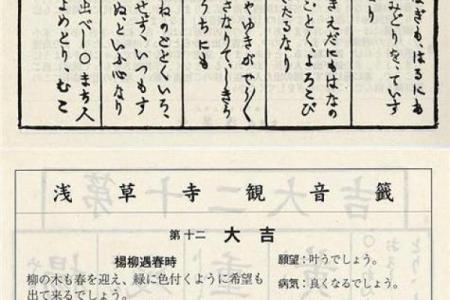 なぎも、はるにあ
みどりを、ていす
り
きえだにもはなの
ごとく、よろこび
たるなり
さなりて、きう
うちにも
せず、いつもす
ぬ、といふ心なり
出べし○まち人
よめとり、むこ
浅草寺観音籤
第十二 大吉
楊柳遇春時
柳の木も春を迎え、緑に色付くように希望も
出て来るでしょう。
願望：叶うでしょう。
病気：良くなるでしょう。